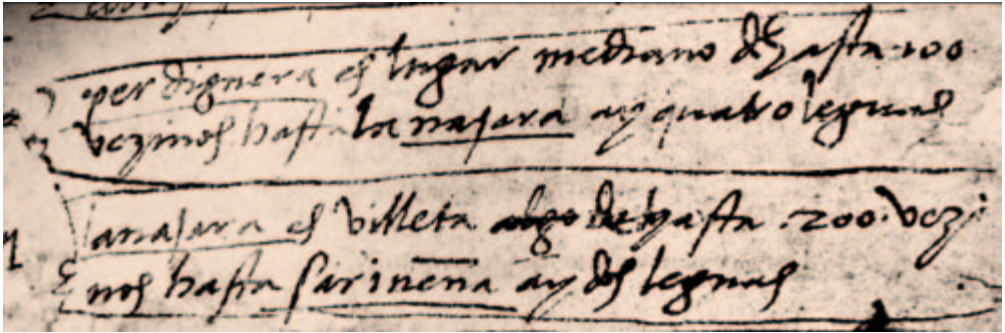 perdiguera es lugar mediano de hasta 100
vezinos hasta la najara ay quatro leguas
lanajara es villeta algo de hasta .200. vezi
nos hasta sarinena ay dos leguas